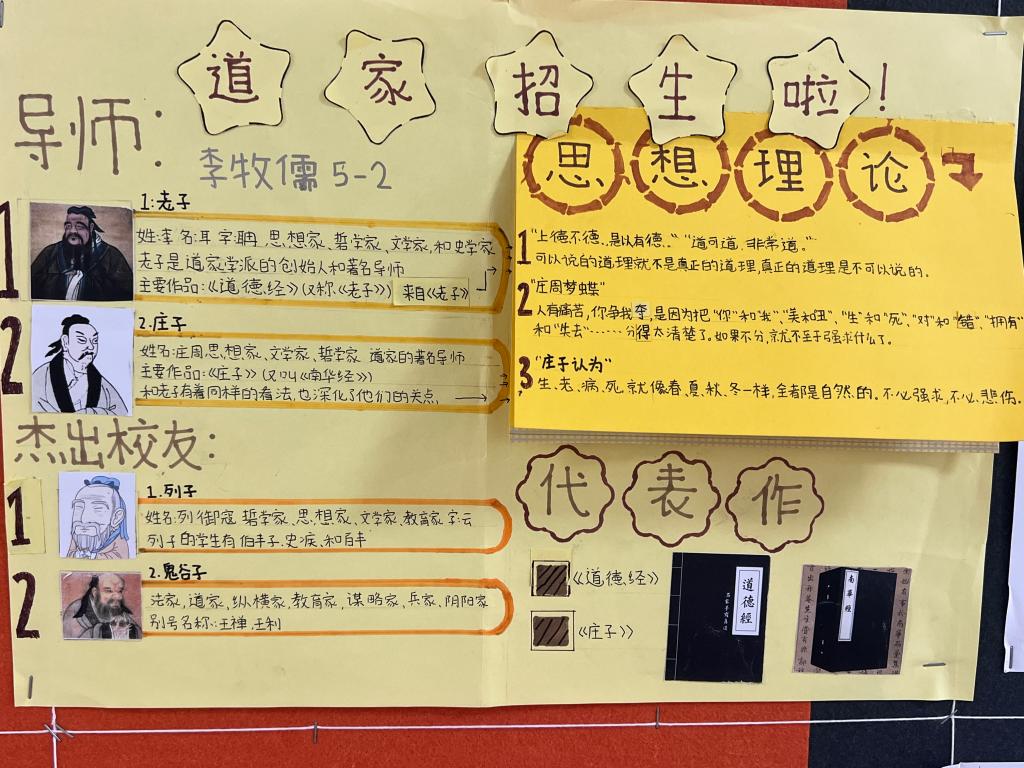 道家招生啦!
导师:
李牧儒 5-2
1
1:老子
姓:李 名:耳 字:聃 思想家、哲学家、文学家,和史学家
老子是道家学派的创始人和著名导师
主要作品:《道德经》(又称《老子》) 来自《老子》
2
2.庄子
姓名:庄周思想家、文学家、哲学家 道家的著名导师
主要作品:《庄子》(又叫《南华经》)
和老子有着同样的看法,也深化了他们的关点,
杰出校友:
1
1.列子
姓名:列御寇 哲学家、思想家、文学家、教育家 字:云
列子的学生有伯丰子、史疾、和百丰
2
2.鬼谷子
法家,道家,纵横家,教育家,谋略家、兵家,阴阳家
别号名称:王禅,王利
思想理论
1 "上德不德..是以有德.." "道可道,非常道。"
可以说的道理就不是真正的道理,真正的道理是不可以说的。
2 "庄周梦蝶"
人有痛苦,你争我夺,是因为把"你"和"我","美和丑","生"和"死","对"和"错","拥有"
和"失去"……分得太清楚了。如果不分,就不至于强求什么了。
3 "庄子认为"
生、老、病、死,就像春、夏、秋、冬一样,全都是自然的。不必强求,不必悲伤.
代表作
《道德经》
《庄子》
道德經
南華經